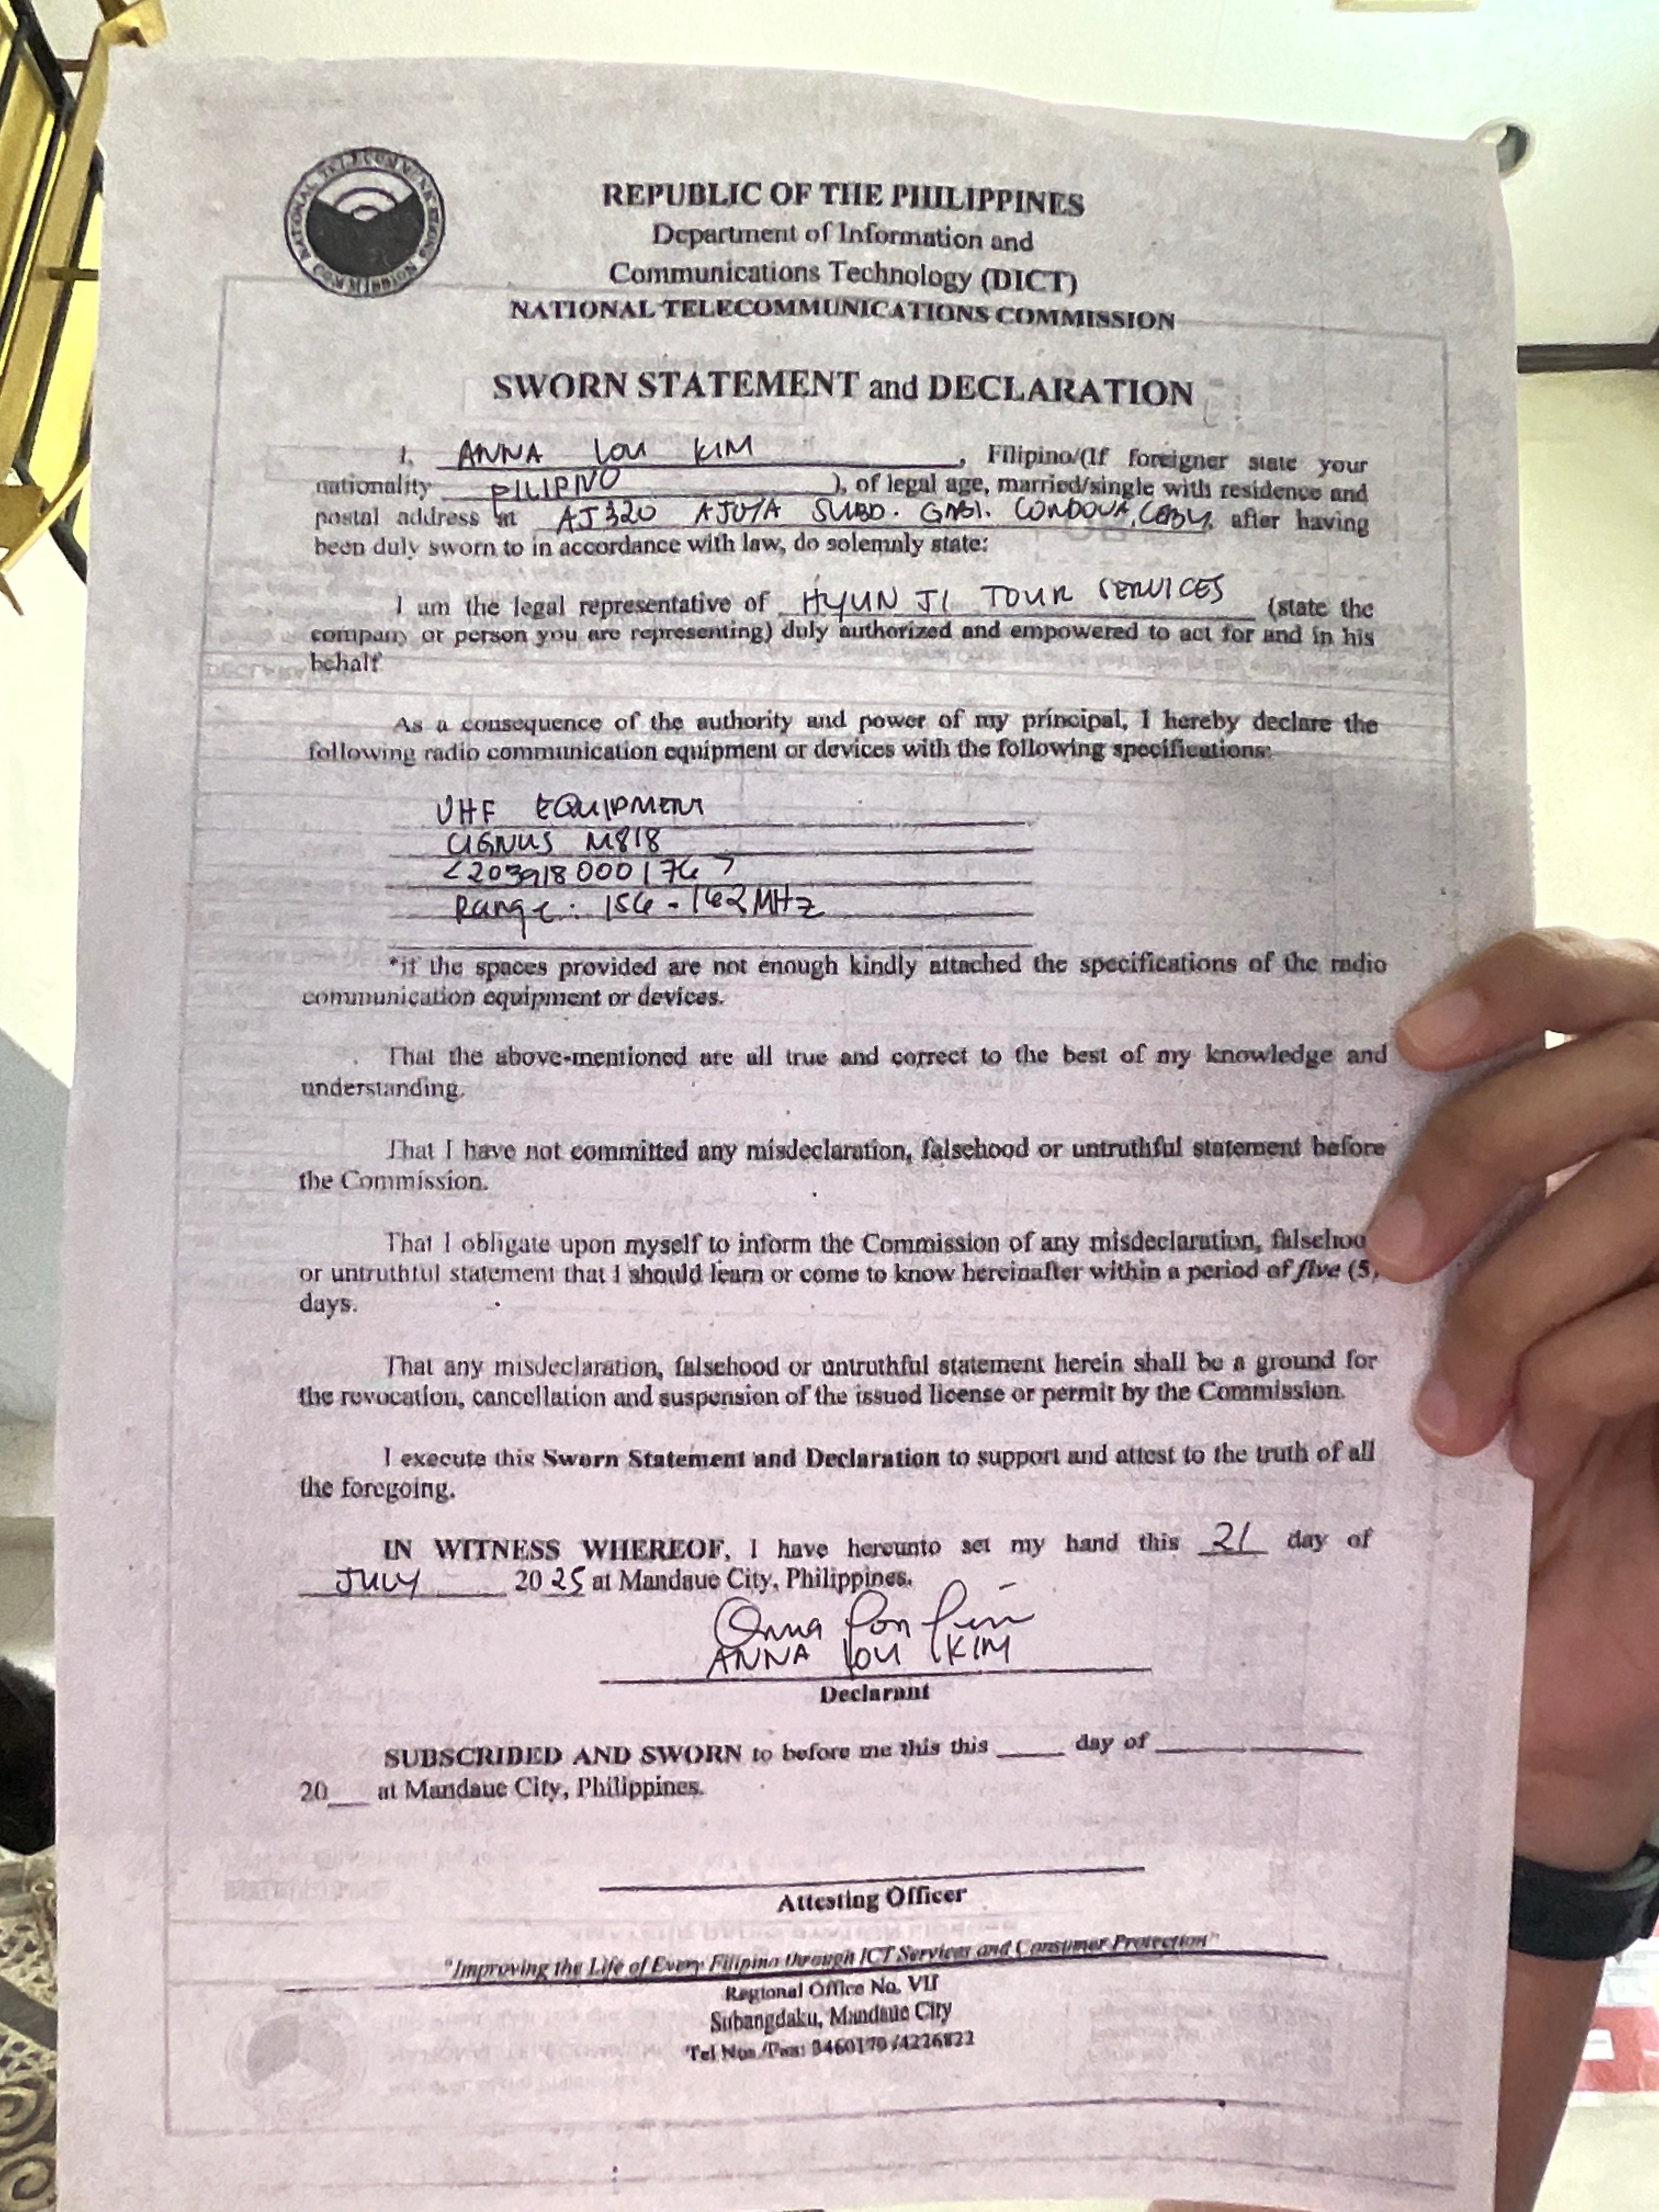 NATIONAL TELECOMMUNICATIONS COMMISSION
REPUBLIC OF THE PHILIPPINES
Department of Information and
Communications Technology (DICT)
NATIONAL TELECOMMUNICATIONS COMMISSION
SWORN STATEMENT and DECLARATION
I, ANNA LOU KIM, Filipino/(If foreigner state your
nationality PILIPINO), of legal age, married/single with residence and
postal address at AJ320 AJOYA SUBD. GABI. CORDOVA, CEBU, after having
been duly sworn to in accordance with law, do solemnly state:
I am the legal representative of HYUN JI TOUR SERVICES (state the
company or person you are representing) duly authorized and empowered to act for and in his
behalf
As a consequence of the authority and power of my principal, I hereby declare the
following radio communication equipment or devices with the following specifications:
VHF EQUIPMENT
CIGNUS M818
<203918000176>
Range: 156 - 162 MHz
*if the spaces provided are not enough kindly attached the specifications of the radio
communication equipment or devices.
That the above-mentioned are all true and correct to the best of my knowledge and
understanding.
That I have not committed any misdeclaration, falsehood or untruthful statement before
the Commission.
That I obligate upon myself to inform the Commission of any misdeclaration, falsehoo
or untruthful statement that I should learn or come to know hereinafter within a period of five (5)
days.
That any misdeclaration, falsehood or untruthful statement herein shall be a ground for
the revocation, cancellation and suspension of the issued license or permit by the Commission.
I execute this Sworn Statement and Declaration to support and attest to the truth of all
the foregoing.
IN WITNESS WHEREOF, I have hereunto set my hand this 21 day of
JULY 2025 at Mandaue City, Philippines.
ANNA LOU KIM
Declarant
SUBSCRIBED AND SWORN to before me this this ____ day of ________
20__ at Mandaue City, Philippines.
Attesting Officer
"Improving the Life of Every Filipino through ICT Services and Consumer Protection"
Regional Office No. VII
Subangdaku, Mandaue City
Tel Nos./Fax: 3460179 /4226822